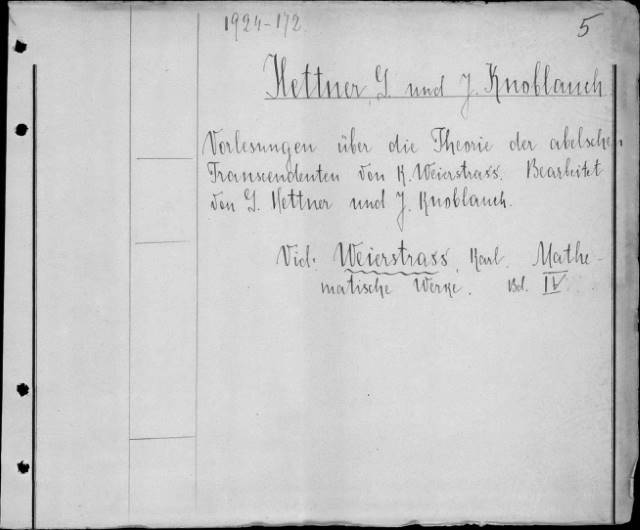 1924-172
5
Hettner, G. und J. Knoblauch
Vorlesungen über die Theorie der abelschen
Transcendenten von K. Weierstrass. Bearbeitet
von G. Hettner und J. Knoblauch.
Vid. Weierstrass, Karl. Mathe-
matische Werke. Bd. IV